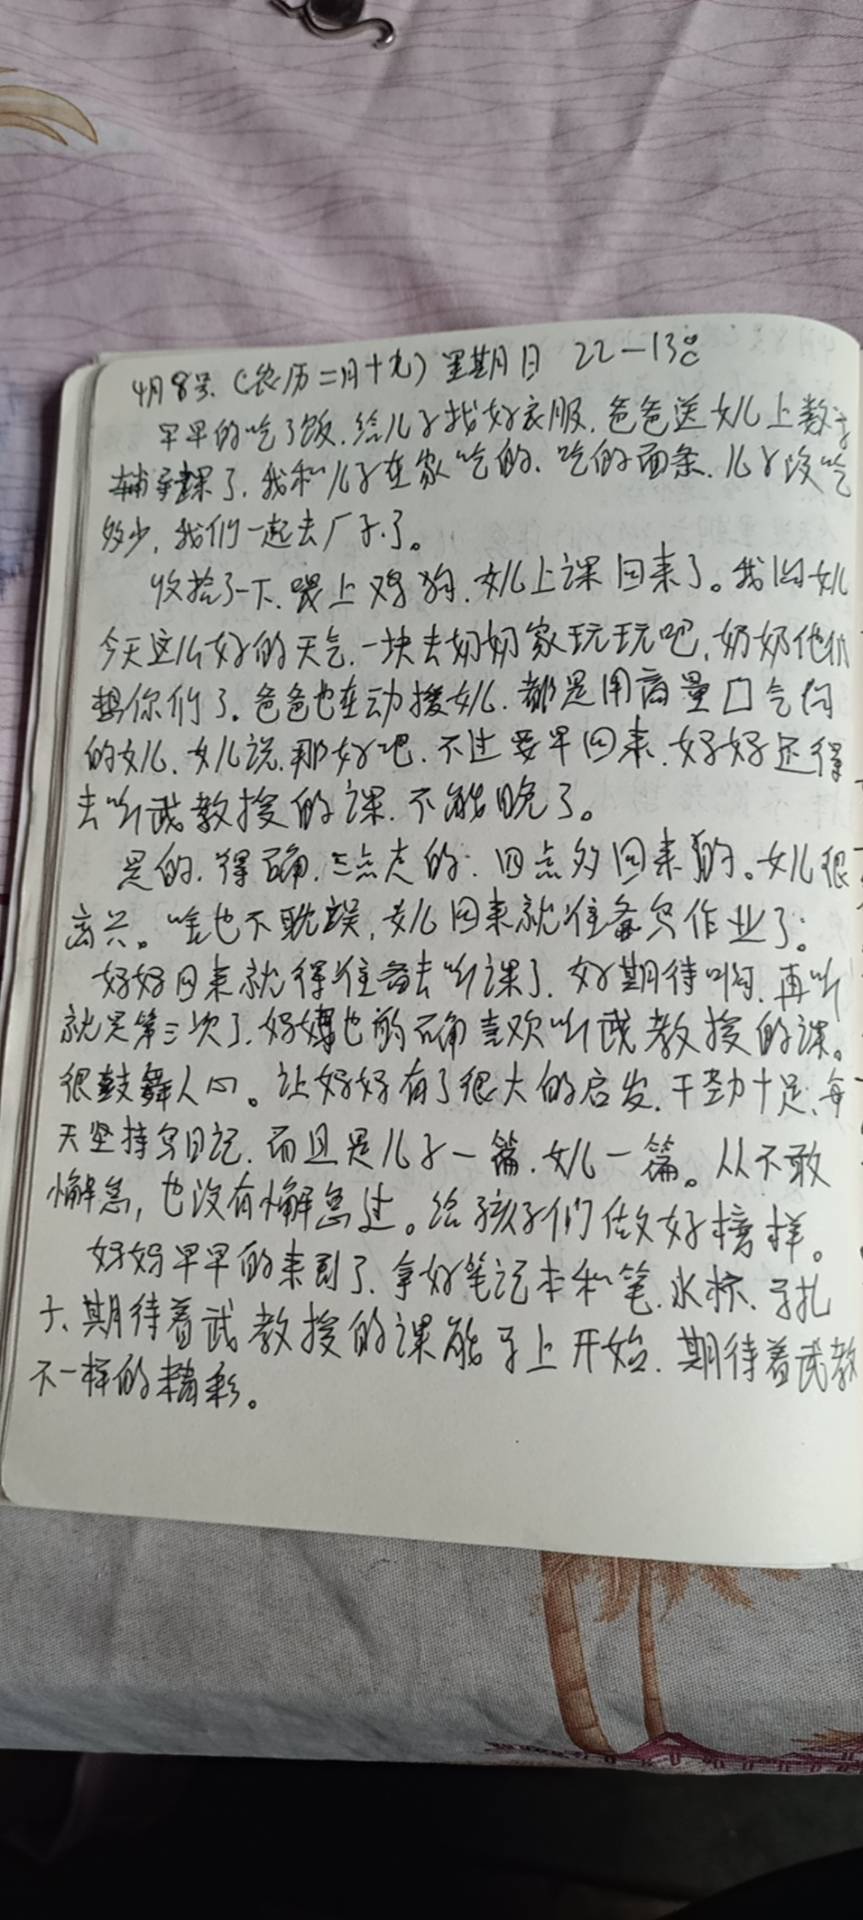 4月8号.（农历二月十九）星期日 22—13℃
早早的吃了饭.给儿子找好衣服.爸爸送女儿上数学
辅导课了.我和儿子在家吃的.吃的面条.儿子没吃
多少,我们一起去厂子了。
收拾了一下.喂上鸡狗.女儿上课回来了。我问女儿
今天这么好的天气.一块去奶奶家玩玩吧,奶奶他们
想你们了。爸爸也在动援女儿.都是用商量口气问
的女儿.女儿说.那好吧.不过要早回来.好好还得
去听武教授的课.不能晚了。
是的.得确.三点走的.四点多回来的。女儿很
高兴。啥也不耽误,女儿回来就准备写作业了.
好好回来就得准备去听课了.好期待啊.再听
就是第三次了.妈妈也的确喜欢听武教授的课。
很鼓舞人心。让好好有了很大的启发.干劲十足,每
天坚持写日记.而且是儿子一篇.女儿一篇。从不敢
懈怠,也没有懈怠过。给孩子们做好榜样。
好妈早早的来到了.拿好笔记本和笔.水杯.
期待着武教授的课能马上开始.期待着武教
不一样的精彩。